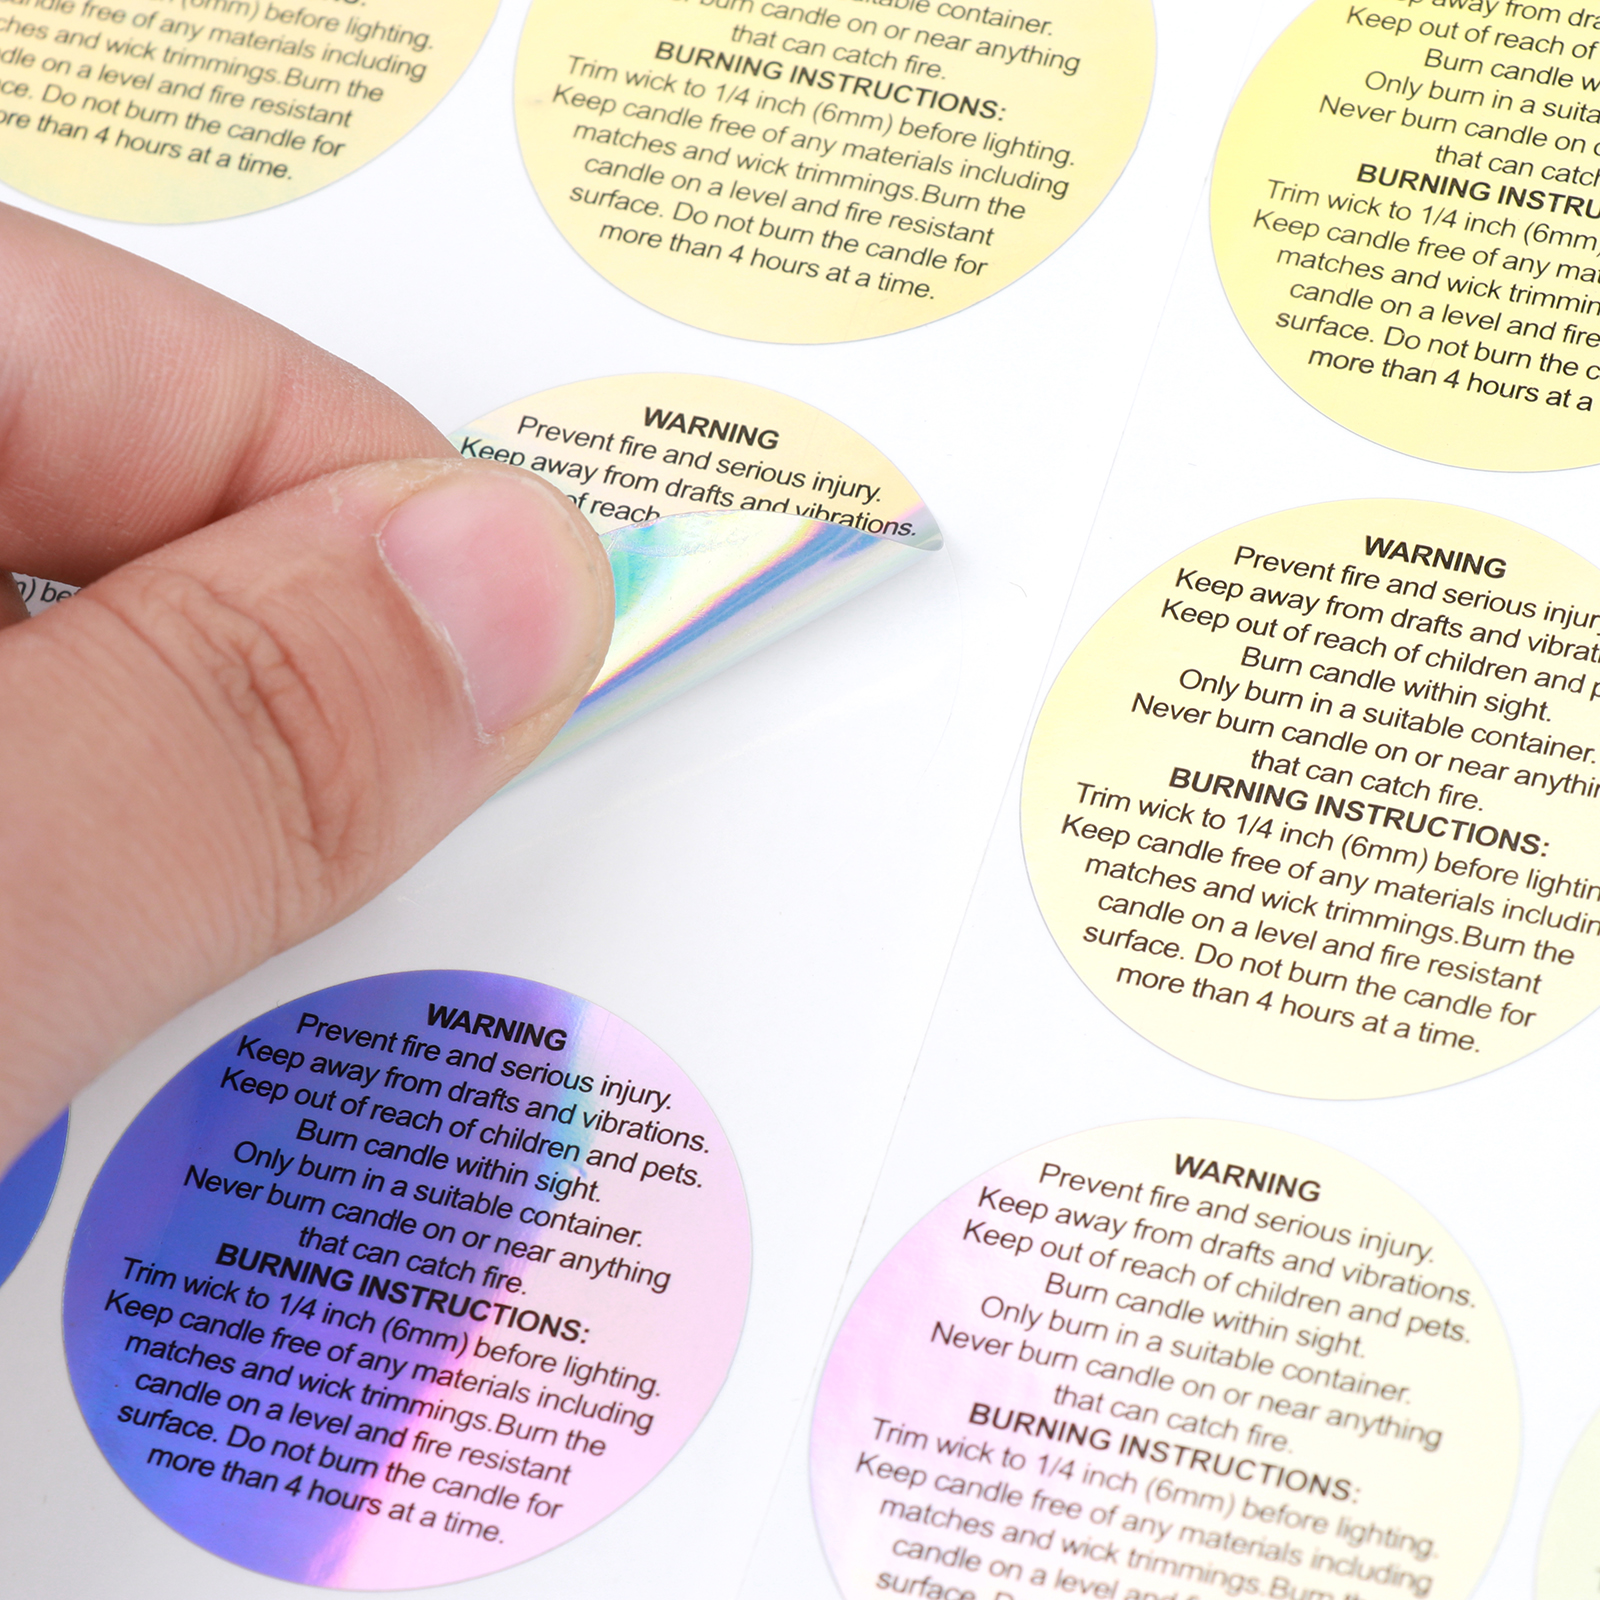 (6mm) before lighting.
free of any materials including
and wick trimmings.Burn the
on a level and fire resistant
Do not burn the candle for
more than 4 hours at a time.
container.
burn candle on or near anything
that can catch fire.
BURNING INSTRUCTIONS:
Trim wick to 1/4 inch (6mm) before lighting.
Keep candle free of any materials including
matches and wick trimmings.Burn the
candle on a level and fire resistant
surface. Do not burn the candle for
more than 4 hours at a time.
away from
Keep out of reach of
Burn candle
Only burn in a
Never burn candle on
that can
BURNING
Trim wick to 1/4 inch (6mm)
Keep candle free of any
matches and wick
candle on a level and fire
surface. Do not burn the
more than 4 hours at a
WARNING
Prevent fire and serious injury.
Keep away from drafts and vibrations.
of reach
WARNING
Prevent fire and serious
Keep away from drafts and
Keep out of reach of children and
Burn candle within sight.
Only burn in a suitable container.
Never burn candle on or near
that can catch fire.
BURNING INSTRUCTIONS:
Trim wick to 1/4 inch (6mm) before
Keep candle free of any materials
matches and wick trimmings.Burn the
candle on a level and fire resistant
surface. Do not burn the candle for
more than 4 hours at a time.
WARNING
Prevent fire and serious injury.
Keep away from drafts and vibrations.
Keep out of reach of children and pets.
Burn candle within sight.
Only burn in a suitable container.
Never burn candle on or near anything
that can catch fire.
BURNING INSTRUCTIONS:
Trim wick to 1/4 inch (6mm) before lighting.
Keep candle free of any materials including
matches and wick trimmings.Burn the
candle on a level and fire resistant
surface. Do not burn the candle for
more than 4 hours at a time.
WARNING
Prevent fire and serious injury.
Keep away from drafts and vibrations.
Keep out of reach of children and pets.
Burn candle within sight.
Only burn in a suitable container.
Never burn candle on or near anything
that can catch fire.
BURNING INSTRUCTIONS:
Trim wick to 1/4 inch (6mm) before lighting.
Keep candle free of any materials including
matches and wick trimmings.Burn
candle on a level and
surface.